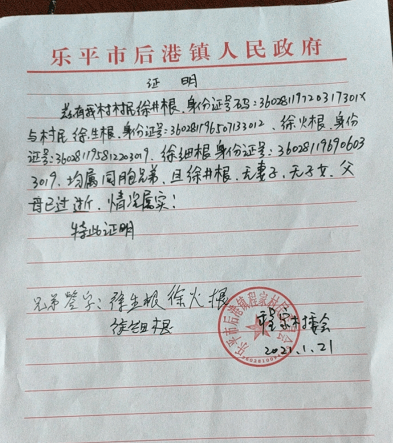 乐平市后港镇人民政府
证 明
兹有我村村民徐井根,身份证号码:36028119720317301X
与村民徐生根,身份证号:360281196507133012、徐火根,身份
证号:360281195812203019、徐细根身份证号:360281196906033
3019,均属同胞兄弟,且徐井根,无妻子,无子女,父
母已过逝,情况属实!
特此证明
兄弟签字:徐生根 徐火根
徐细根
程家村委会
2021.1.21
乐平市后港镇程家村